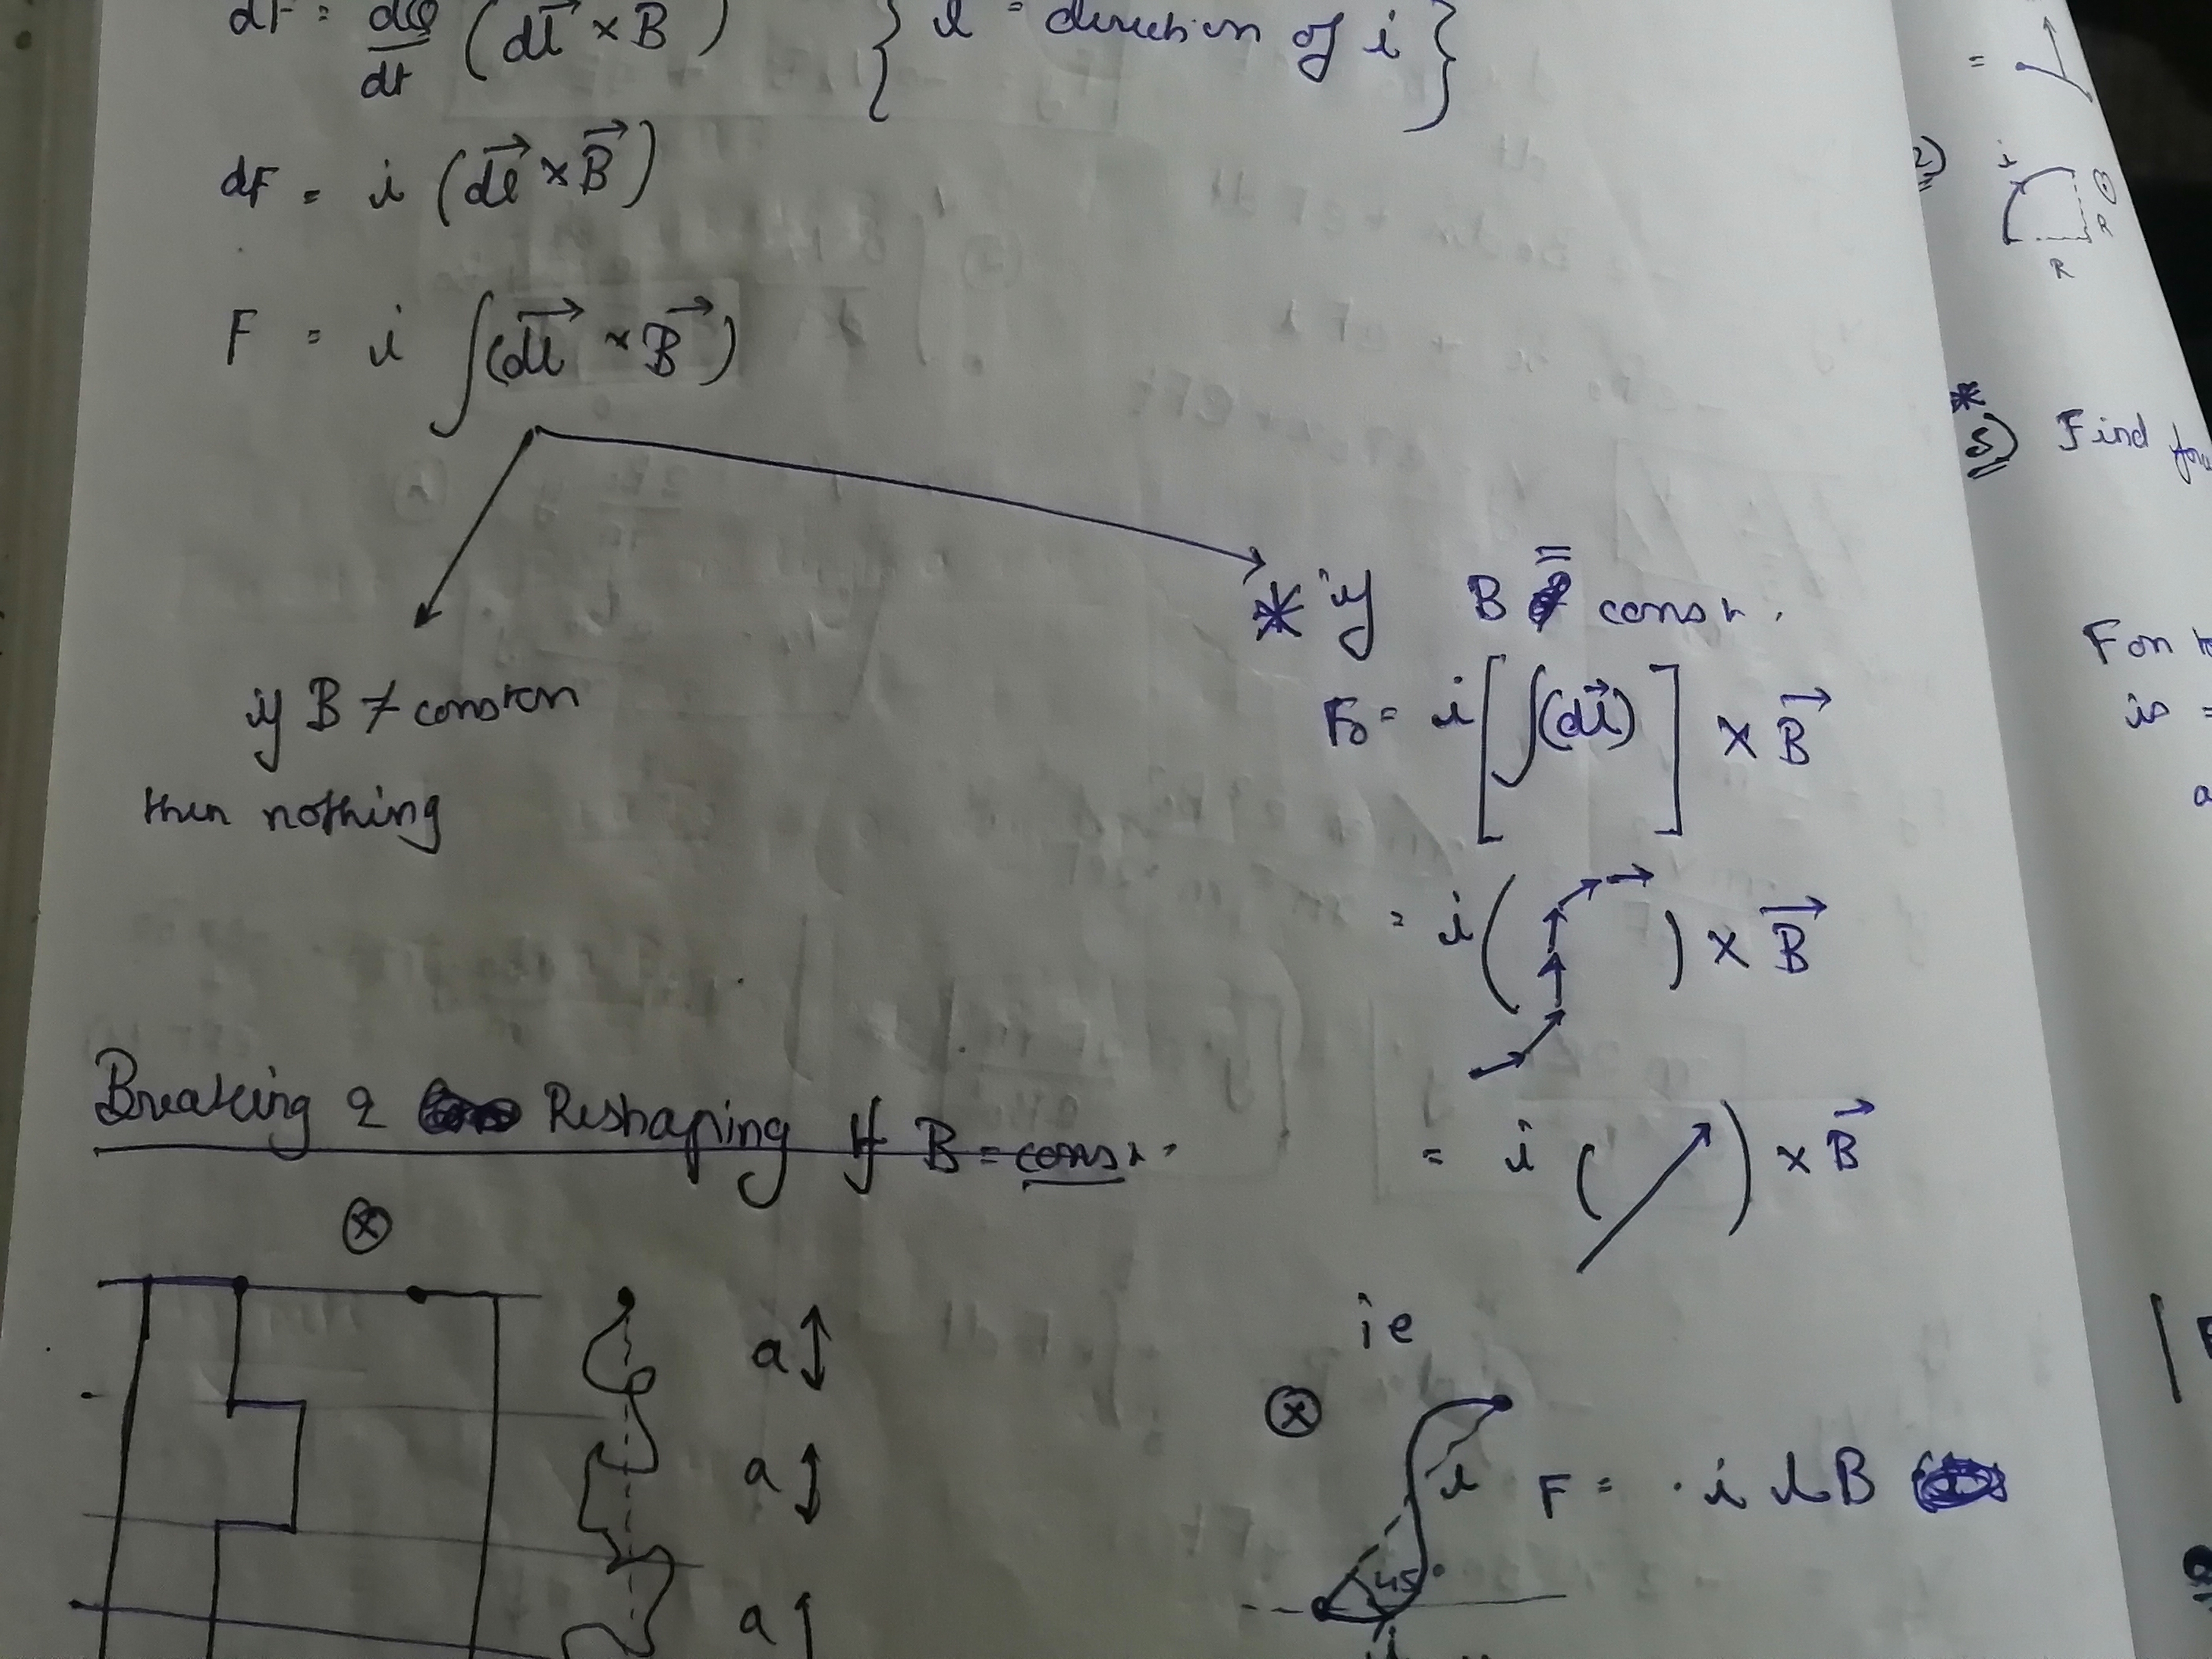 dF = dQ/dt (dl × B) { l = direction of i }
dF = i (dl × B)
F = i ∫(dl × B)
if B ≠ constan
then nothing
* if B = const.
F₀ = i [∫(dl)] × B
= i ( ) × B
= i ( ) × B
Breaking & Reshaping If B = const.
⊗
a
a
a
ie
⊗
l F = i l B
45°
i
=
2)
i
R
R
*
5) Find
For
is =
a